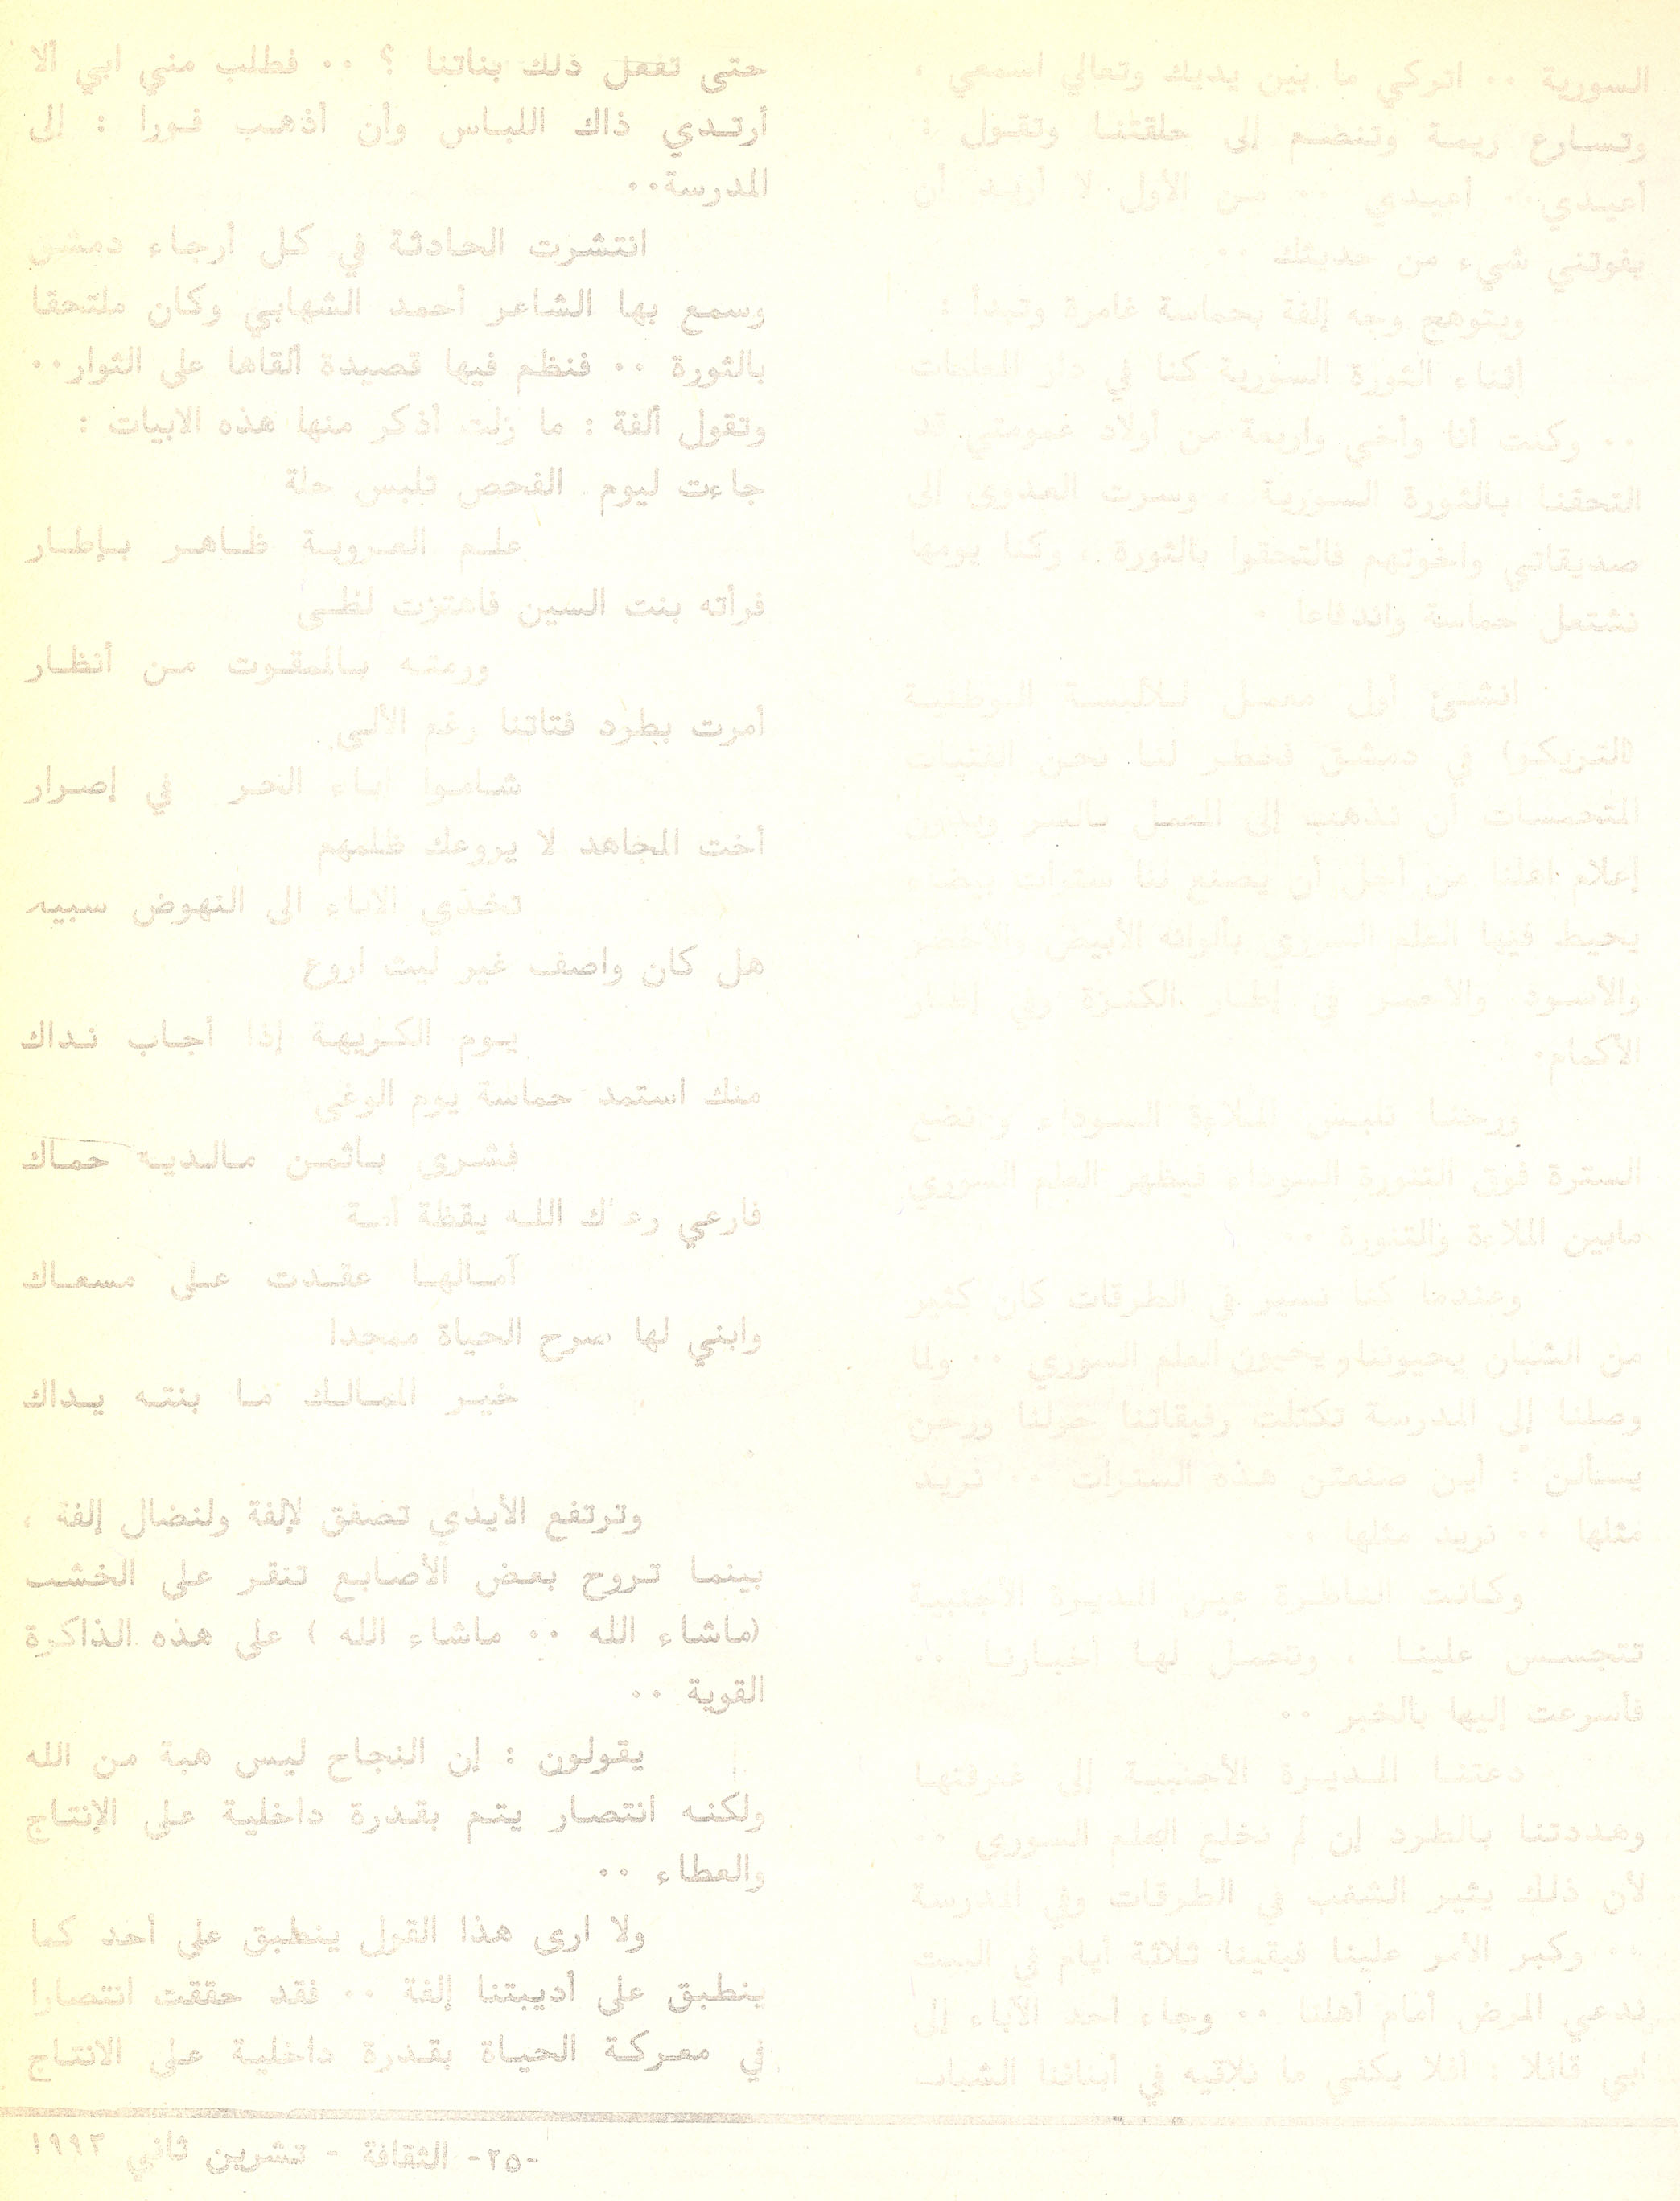 السورية ·· اتركي ما بين يديك وتعالي اسمعي ،
وتسارع ريمة وتنضم إلى حلقتنا وتقول :
أعيدي ·· أعيدي ·· من الأول لا أريد أن
يفوتني شيء من حديثك ··
ويتوهج وجه إلفة بحماسة غامرة وتبدأ :
أثناء الثورة السورية كنا في دار المعلمات
·· وكنت أنا وأخي واربعة من أولاد عمومتي قد
التحقنا بالثورة السورية ، وسرت العدوى إلى
صديقاتي واخوتهم فالتحقوا بالثورة ، وكنا يومها
نشتعل حماسة واندفاعا ·
انشئ أول معمل للألبسة الوطنية
(التريكو) في دمشق فخطر لنا نحن الفتيات
المتحمسات أن نذهب إلى المعمل بالسر وبدون
إعلام اهلنا من أجل أن يصنع لنا سترات بيضاء
يحيط فيها العلم السوري بألوانه الأبيض والأخضر
والأسود والأحمر في إطار الكنزة وفي إطار
الأكمام·
ورحنا نلبس الملاءة السوداء ونضع
السترة فوق التنورة السوداء فيظهر العلم السوري
مابين الملاءة والتنورة ··
وعندما كنا نسير في الطرقات كان كثير
من الشبان يحيوننا ويحيون العلم السوري ·· ولما
وصلنا إلى المدرسة تكتلت رفيقاتنا حولنا ورحن
يسألن : أين صنعتن هذه السترات ·· نريد
مثلها ·· نريد مثلها ·
وكانت الناظرة عين المديرة الأجنبية
تتجسس علينا ، وتحمل لها أخبارنا ··
فأسرعت إليها بالخبر ··
دعتنا المديرة الأجنبية إلى غرفتها
وهددتنا بالطرد إن لم نخلع العلم السوري ··
لأن ذلك يثير الشغب في الطرقات وفي المدرسة
·· وكبر الأمر علينا فبقينا ثلاثة أيام في البيت
ندعي المرض أمام أهلنا ·· وجاء أحد الآباء إلى
ابي قائلا : أفلا يكفي ما نلاقيه في أبنائنا الشباب
حتى تفعل ذلك بناتنا ؟ ·· فطلب مني ابي ألا
أرتدي ذاك اللباس وأن أذهب فورا : إلى
المدرسة··
انتشرت الحادثة في كل أرجاء دمشق
وسمع بها الشاعر أحمد الشهابي وكان ملتحقا
بالثورة ·· فنظم فيها قصيدة ألقاها على الثوار··
وتقول ألفة : ما زلت أذكر منها هذه الابيات :
جاءت ليوم الفحص تلبس حلة
علم العروبة ظاهر بإطار
فرأته بنت السين فاهتزت لظى
ورمته بالممقوت من أنظار
أمرت بطرد فتاتنا رغم الألى
شاموا إباء الحر في إصرار
أخت المجاهد لا يروعك ظلمهم
تخذي الاباء الى النهوض سبيه
هل كان واصف غير ليث أروع
يوم الكريهة إذا أجاب نداك
منك استمد حماسة يوم الوغى
فشرى بأثمن مالديه حماك
فارعي رعاك الله يقظة أمة
آمالها عقدت على مسعاك
وابني لها صرح الحياة ممجدا
خير الممالك ما بنته يداك
وترتفع الأيدي تصفق لإلفة ولنضال إلفة ،
بينما تروح بعض الأصابع تنقر على الخشب
(ماشاء الله ·· ماشاء الله ) على هذه الذاكرة
القوية ··
يقولون : إن النجاح ليس هبة من الله
ولكنه انتصار يتم بقدرة داخلية على الإنتاج
والعطاء ··
ولا ارى هذا القول ينطبق على أحد كما
ينطبق على أديبتنا إلفة ·· فقد حققت انتصارا
في معركة الحياة بقدرة داخلية على الانتاج
-٢٥- الثقافة - تشرين ثاني ١٩٩٢